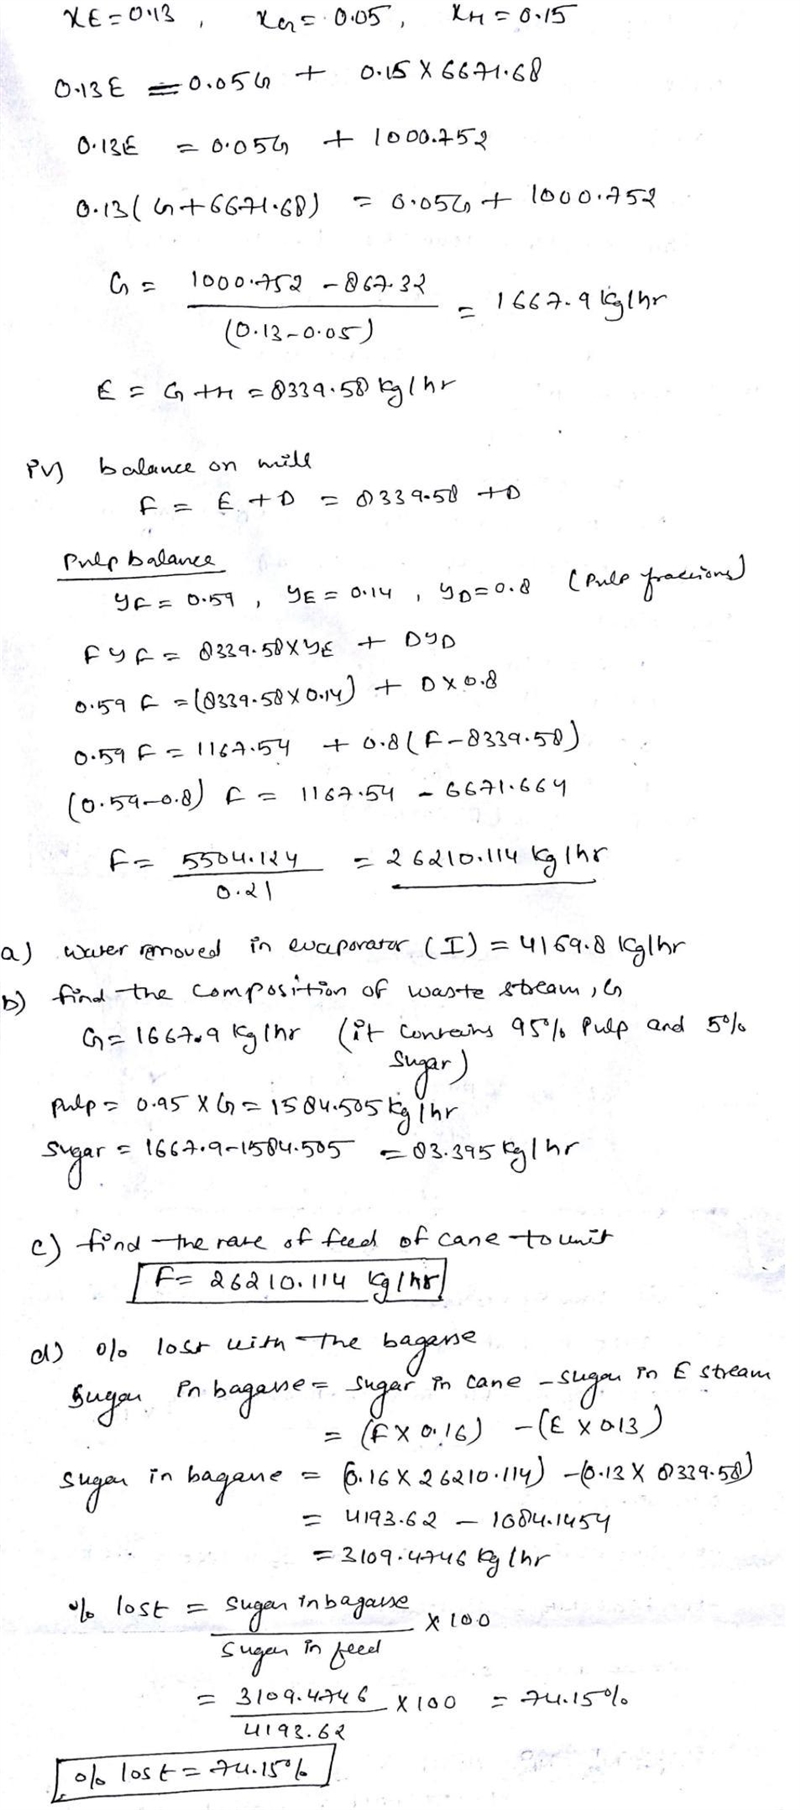 xE = 0.13 , xG = 0.05 , xH = 0.15
0.13E = 0.05G + 0.15 X 6671.68
0.13E = 0.05G + 1000.752
0.13(G+6671.68) = 0.05G + 1000.752
G = 1000.752 - 867.32 / (0.13-0.05) = 1667.9 kg/hr
E = G+H = 8339.58 kg/hr
iv) balance on mill
F = E + D = 8339.58 + D
Pulp balance
yF = 0.59 , yE = 0.14 , yD = 0.8 (Pulp fractions)
FyF = 8339.58 X yE + DyD
0.59 F = (8339.58 X 0.14) + D X 0.8
0.59 F = 1167.54 + 0.8(F-8339.58)
(0.59-0.8) F = 1167.54 - 6671.664
F = 5504.124 / 0.21 = 26210.114 kg/hr
a) water removed in evaporator (I) = 4169.8 kg/hr
b) find the composition of waste stream, G
G = 1667.9 kg/hr (it contains 95% Pulp and 5%
sugar)
Pulp = 0.95 X G = 1584.505 kg/hr
sugar = 1667.9-1584.505 = 83.395 kg/hr
c) find the rate of feed of cane to unit
F = 26210.114 kg/hr
d) % lost with the bagasse
Sugar in bagasse = sugar in cane - sugar in E stream
= (F X 0.16) - (E X 0.13)
sugar in bagasse = (0.16 X 26210.114) - (0.13 X 8339.58)
= 4193.62 - 1084.1454
= 3109.4746 kg/hr
% lost = sugar in bagasse / sugar in feed X 100
= 3109.4746 / 4193.62 X 100 = 74.15%
% lost = 74.15%